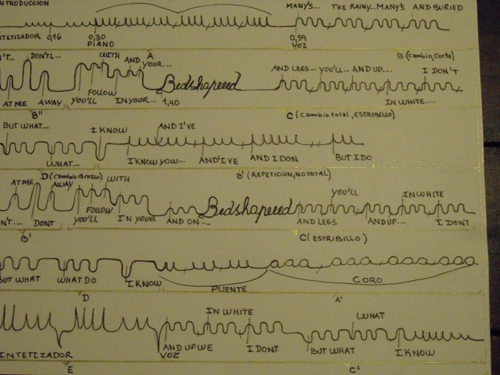 INTRODUCCION
MANY'S... THE RAINY... MANY'S AND BURIED
NTETIZADOR 0,16 0,30 0,59
PIANO VOZ
N'T... DON'TL... WITH AND A YOUR... B (Cambio, Corte)
Bedshapeed AND LEGS... YOU'LL... AND UP... I DON'T
AT ME AWAY FOLLOW YOU'LL IN YOUR... 1,40 IN WHITE...
B" C (Cambio total, ESTRIBILLO)
BUT WHAT... I KNOW AND I'VE
WHAT... I KNOW YOW... AND'I'VE AND I DON BUT I DO
D (Cambio Brusco) B' (REPETICION, NO TOTAL)
AT ME AWAY WITH YOU'LL IN WHITE
Bedshapeed
N'T.... DONT FOLLOW YOU'LL IN YOUR AND ON... AND LEGS AND UP... I DONT
B' C' (ESTRIBILLO)
BUT WHAT WHAT DO I KNOW PUENTE CORO
D A'
IN WHITE WHAT
INTETIZADOR VOZ AND UP WE I DONT BUT WHAT I KNOW
E C'